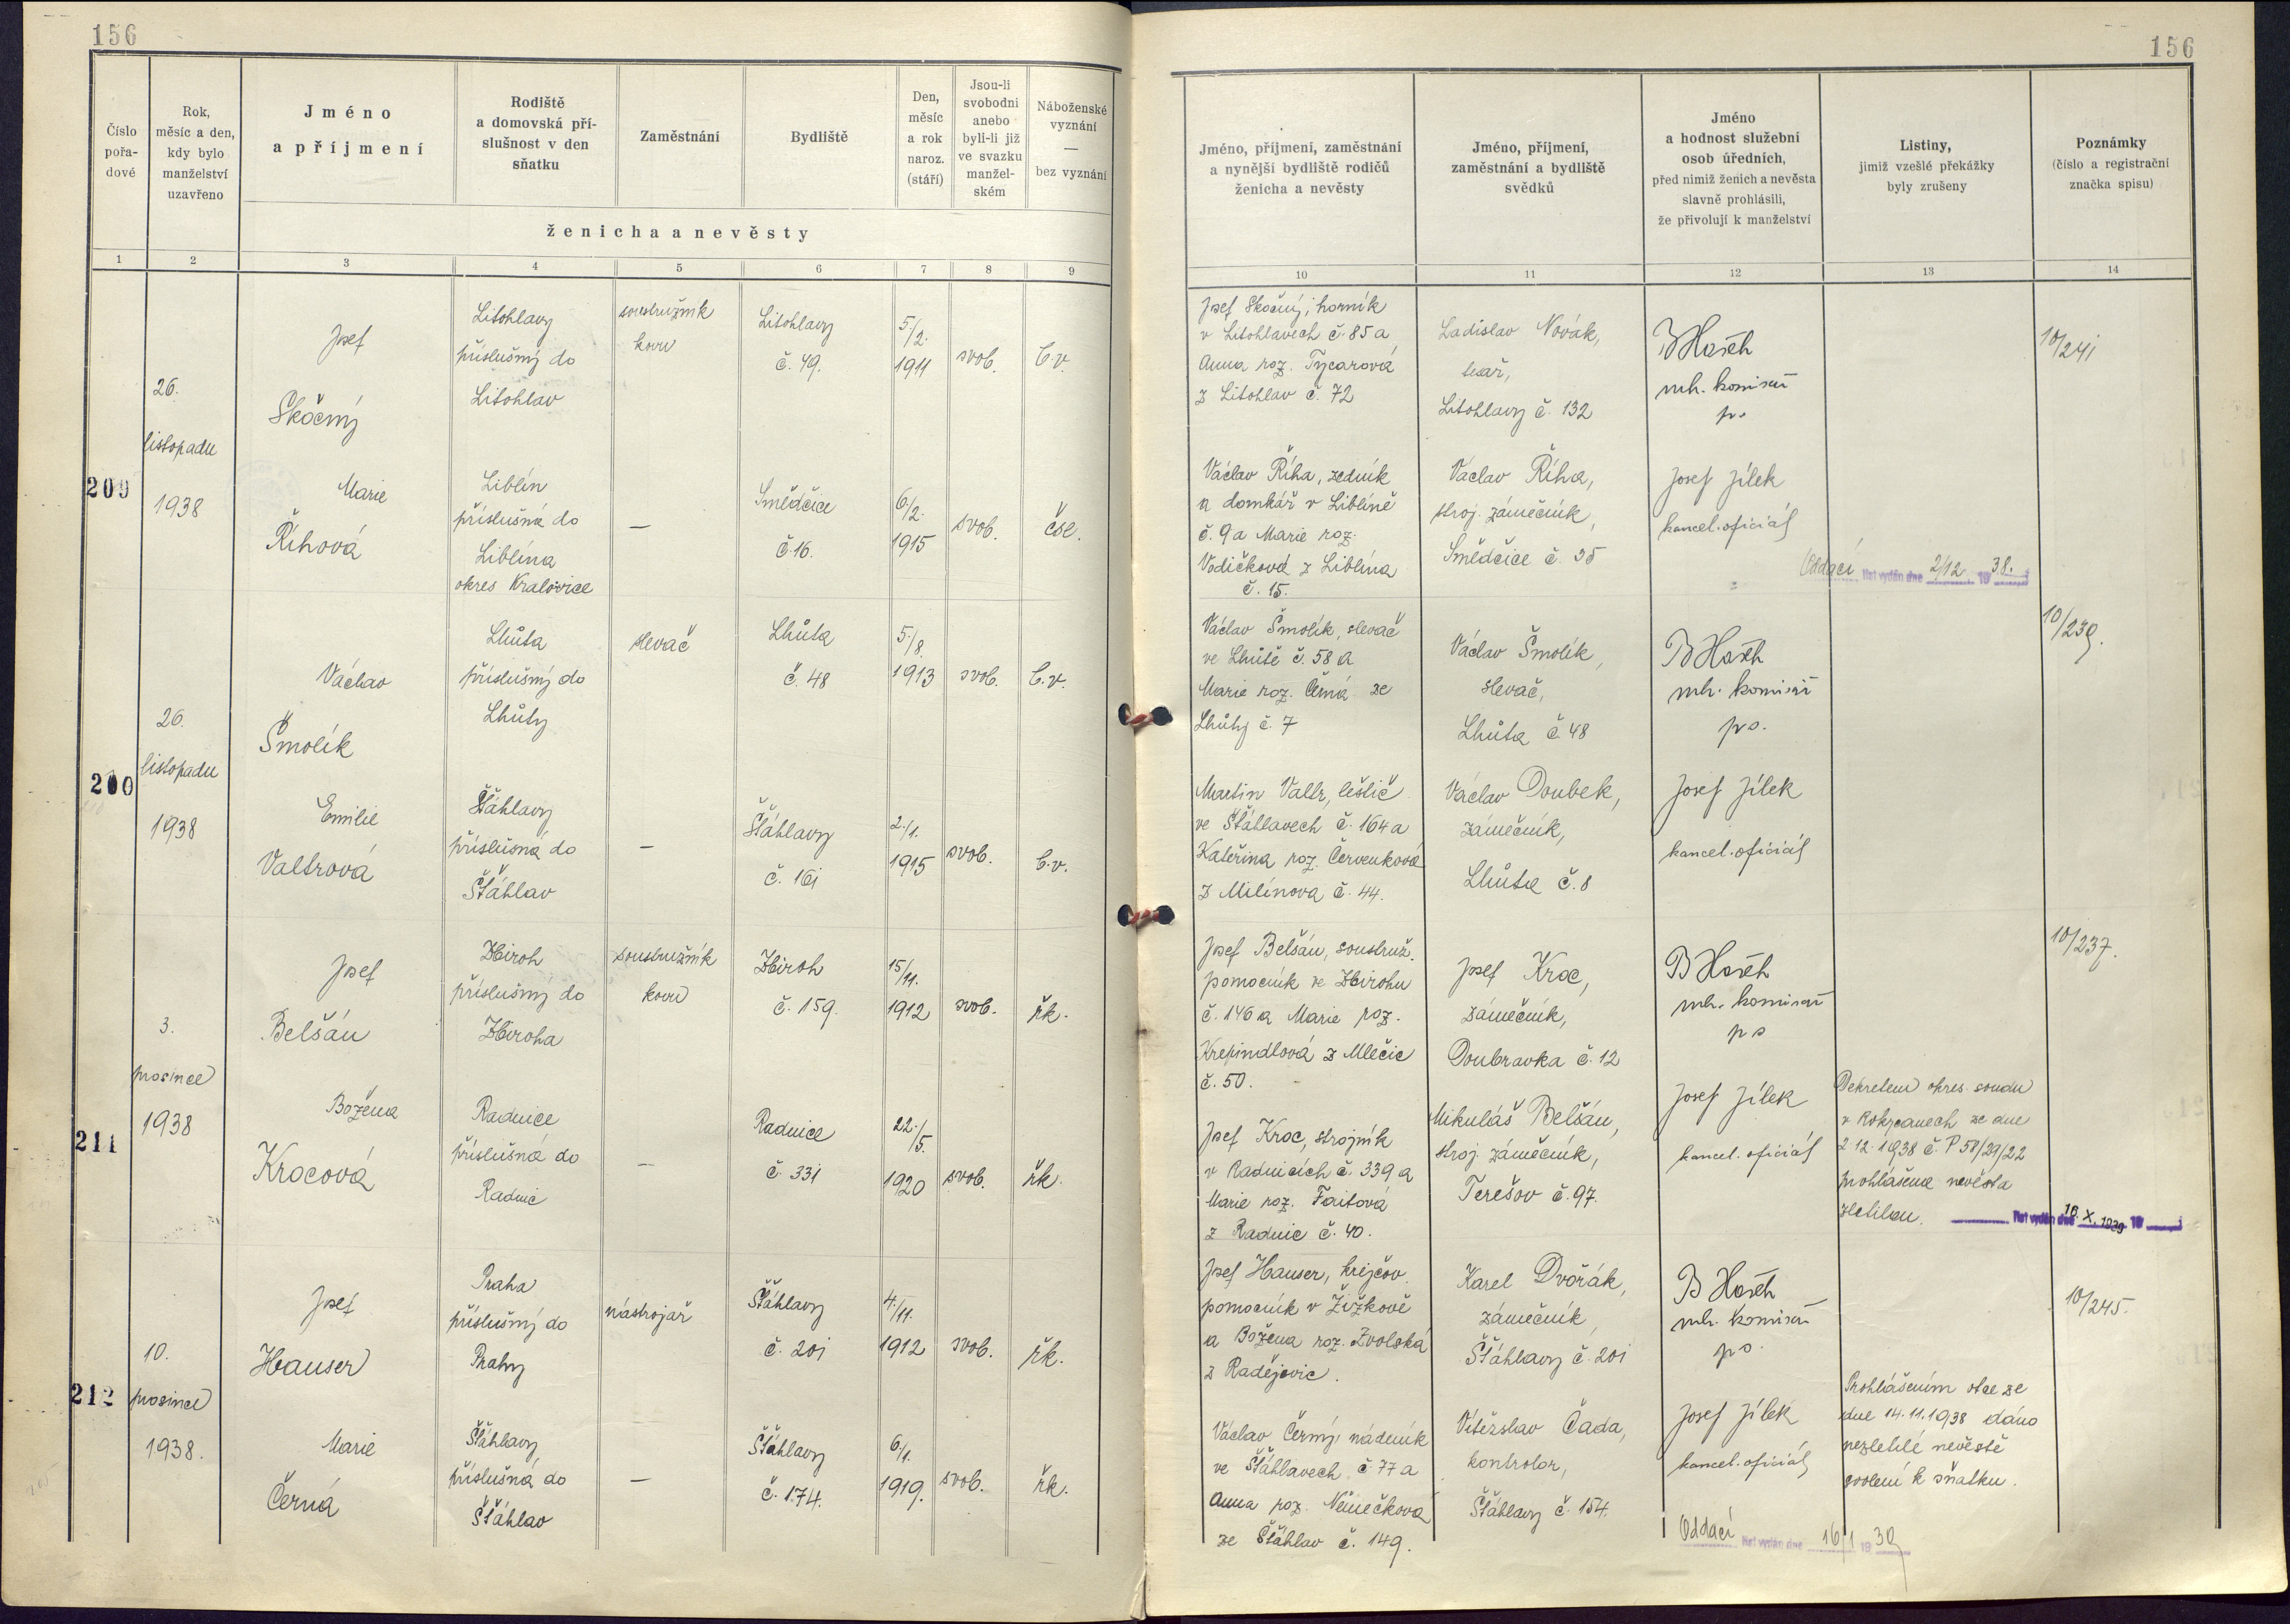 156
156
Číslo
pořa-
dové
Rok,
měsíc a den,
kdy bylo
manželství
uzavřeno
Jméno
a příjmení
Rodiště
a domovská pří-
slušnost v den
sňatku
Zaměstnání
Bydliště
Den,
měsíc
a rok
naroz.
(stáří)
Jsou-li
svobodni
anebo
byli-li již
ve svazku
manžel-
ském
Náboženské
vyznání
—
bez vyznání
ženicha a nevěsty
Jméno, příjmení, zaměstnání
a nynější bydliště rodičů
ženicha a nevěsty
Jméno, příjmení,
zaměstnání a bydliště
svědků
Jméno
a hodnost služební
osob úředních,
před nimiž ženich a nevěsta
slavně prohlásili,
že přivolují k manželství
Listiny,
jimiž vzešlé překážky
byly zrušeny
Poznámky
(číslo a registrační
značka spisu)
1 2 3 4 5 6 7 8 9 10 11 12 13 14
209
26.
listopadu
1938
Josef
Skočný
Litohlavy
příslušný do
Litohlav
soustružník
kovu
Litohlavy
č. 49.
5./2.
1911
svob.
b.v.
Josef Skočný, horník
v Litohlavech č. 85 a
Anna roz. Tycarová
z Litohlav č. 72
Ladislav Novák,
Litohlavy č. 132
B Hoch
mk. komisař
10/241
Marie
Říhová
Liblín
příslušná do
Liblína
okres Kralovice
—
Smědčice
č. 16.
6./2.
1915
svob.
čsl.
Václav Říha, zedník
a domkář v Liblíně
č. 9 a Marie roz.
Vodičková z Liblína
č. 15.
Václav Říha,
stroj. zámečník,
Smědčice č. 35
Josef Jílek
kancel. oficiál
Oddací list vydán dne 2/12 1938.
200
26.
listopadu
1938
Václav
Šmolík
Lhůta
příslušný do
Lhůty
slevač
Lhůta
č. 48
5./8.
1913
svob.
b.v.
Václav Šmolík, slevač
ve Lhůtě č. 58 a
Marie roz. Černá ze
Lhůty č. 7
Václav Šmolík,
slevač,
Lhůta č. 48
B Hoch
mk. komisař
10/239.
Emilie
Valtrová
Šťáhlavy
příslušná do
Šťáhlav
—
Šťáhlavy
č. 161
2./1.
1915
svob.
b.v.
Martin Valtr, leštič
ve Šťáhlavech č. 164 a
Kateřina roz. Červenková
z Milínova č. 44.
Václav Doubek,
zámečník,
Lhůta č. 8
Josef Jílek
kancel. oficiál
211
3.
prosince
1938
Josef
Belšán
Zbiroh
příslušný do
Zbiroha
soustružník
kovu
Zbiroh
č. 159.
15/11.
1912
svob.
řk.
Josef Belšán, soustruž.
pomocník ve Zbirohu
č. 146 a Marie roz.
Krepindlová z Mlečic
č. 50.
Josef Kroc,
zámečník,
Doubravka č. 12
B Hoch
mk. komisař
10/237.
Božena
Krocová
Radnice
příslušná do
Radnic
—
Radnice
č. 331
22./5.
1920
svob.
řk.
Josef Kroc, strojník
v Radnicích č. 339 a
Marie roz. Faitová
z Radnic č. 40.
Mikuláš Belšán,
stroj. zámečník,
Terešov č. 97.
Josef Jílek
kancel. oficiál
Dekretem okres. soudu
v Rokycanech ze dne
2.12.1938 č. P 58/29/22
prohlášena nevěsta
zletilou.
list vydán dne 16. X. 1939 19
212
10.
prosince
1938.
Josef
Hauser
Praha
příslušný do
Prahy
nástrojař
Šťáhlavy
č. 201
4./11.
1912
svob.
řk.
Josef Hauser, krejčov.
pomocník v Žižkově
a Božena roz. Zvolská
z Radějovic.
Karel Dvořák,
zámečník,
Šťáhlavy č. 201
B Hoch
mk. komisař
10/245.
Marie
Černá
Šťáhlavy
příslušná do
Šťáhlav
—
Šťáhlavy
č. 174.
6./1.
1919.
svob.
řk.
Václav Černý, nádeník
ve Šťáhlavech č. 77 a
Anna roz. Němečková
ze Šťáhlav č. 149.
Vítězslav Čada,
kontrolor,
Šťáhlavy č. 154.
Josef Jílek
kancel. oficiál
Prohlášením otce ze
dne 14.11.1938 dáno
nezletilé nevěstě
svolení k sňatku.
Oddací list vydán dne 16/1 1939